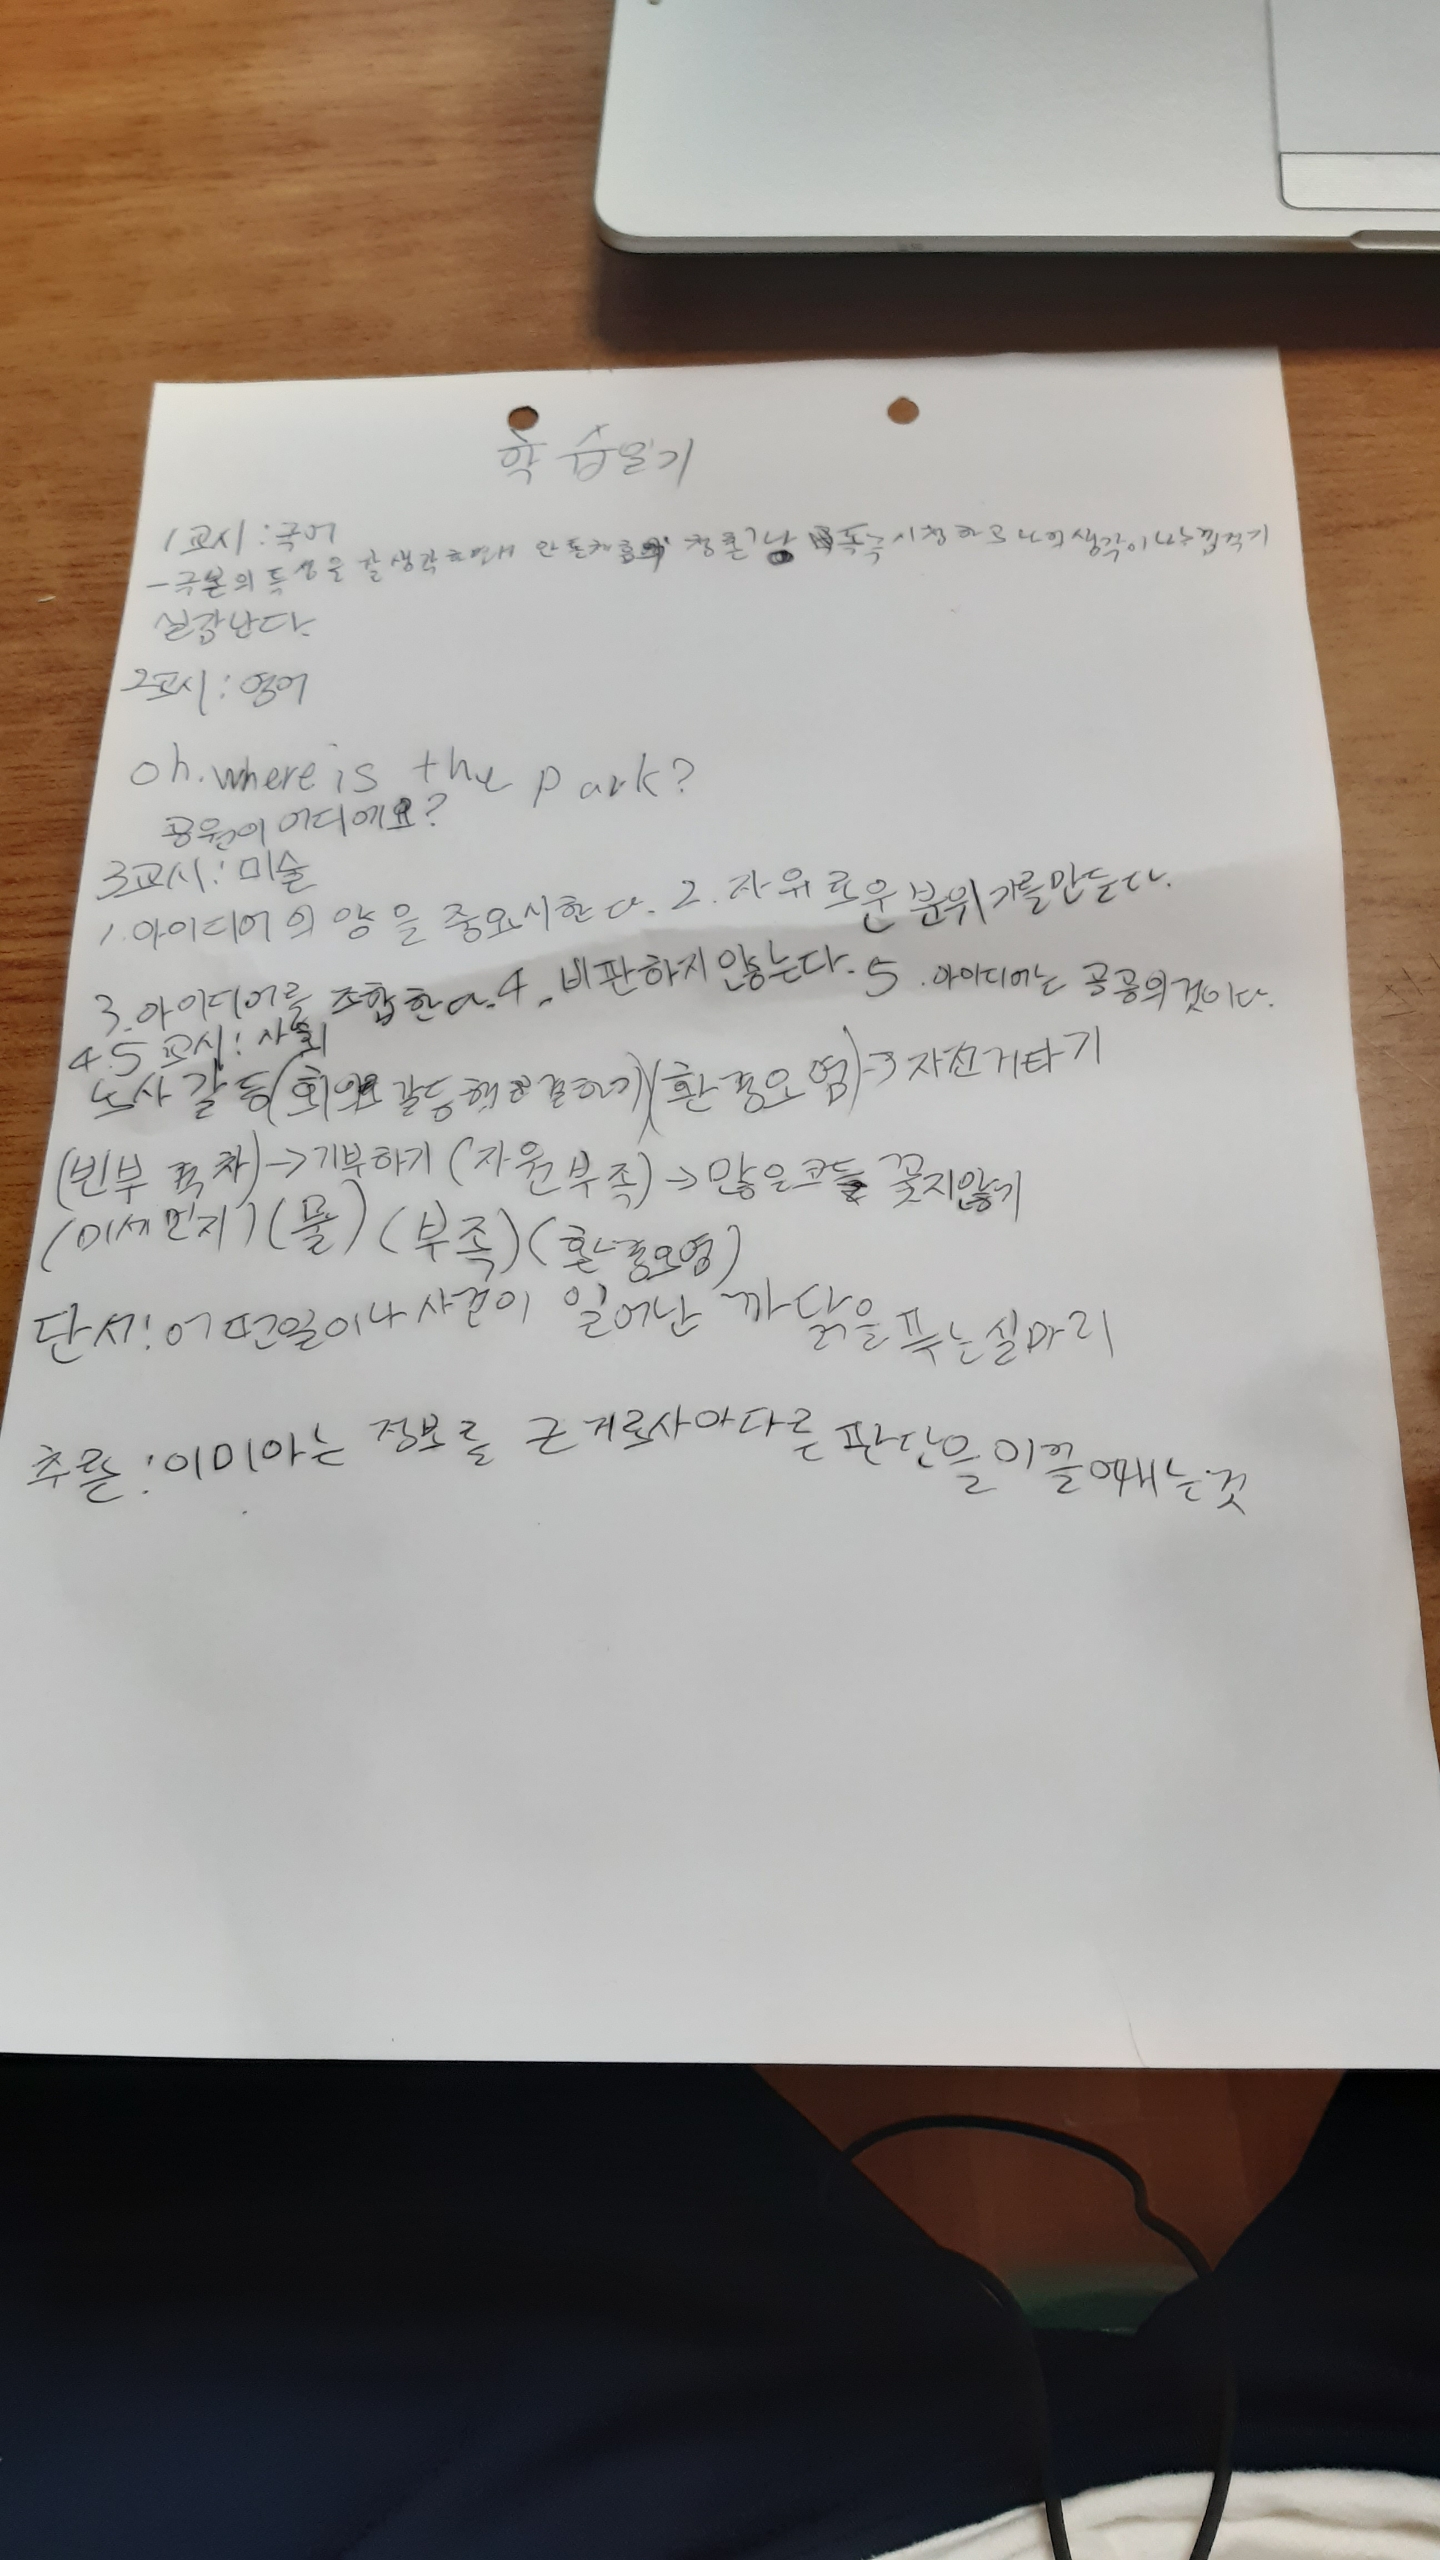 학습일기
1교시:국어
-극본의 특성을 잘 생각하면서 시청하고 나의 생각이나 느낌적기
실감난다.
2교시:영어
oh. where is the park?
공원이 어디에요?
3교시:미술
1.아이디어의 양을 중요시한다. 2.자유로운 분위기를만든다.
3.아이디어를 조합한다. 4.비판하지 않는다. 5.아이디어는 공공의것이다.
4.5교시:사회
노사갈등(회의로 갈등해결하기)(환경오염)→자전거타기
(빈부격차)→기부하기 (자원부족)→많은코드 꽂지않기
(미세먼지)(물)(부족)(환경오염)
단서:어떤일이나 사건이 일어난 까닭을 푸는실마리
추론:이미아는 정보를 근거로삼아다른 판단을이끌어내는것